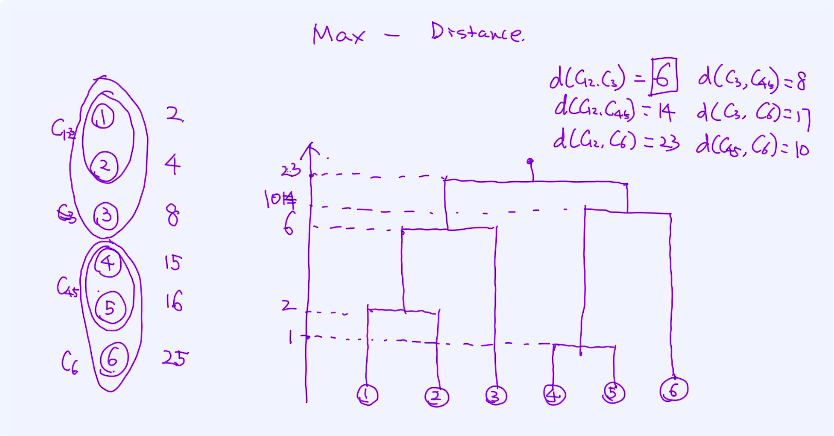 Max - Distance.
d(C12.C3) = 6 d(C3, C45)=8
d(C12.C45) = 14 d(C3, C6)=17
d(C12, C6) = 23 d(C45, C6)=10
C12
1 2
2 4
C3 3 8
4 15
C45
5 16
C6 6 25
23
10
6
2
1
1 2 3 4 5 6